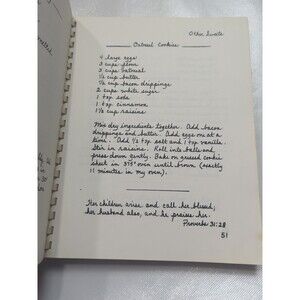 Other Sweets
Oatmeal Cookies
4 large eggs
3 cups flour
3 cups oatmeal
cup butter
cup bacon drippings
2 cups white sugar
1 tsp soda
1 tsp cinnamon
1½ cups raisins
Mix dry ingredients together. Add bacon
drippings and butter. Add eggs one at a
time. Add ½ tsp salt and 1 tsp vanilla.
Stir in raisins. Roll into balls and
press down gently. Bake on greased cookie
sheet in 375° oven until brown (exactly
11 minutes in my oven).
Her children arise and call her blessed,
her husband also, and he praises her.
Proverbs 31:28
51